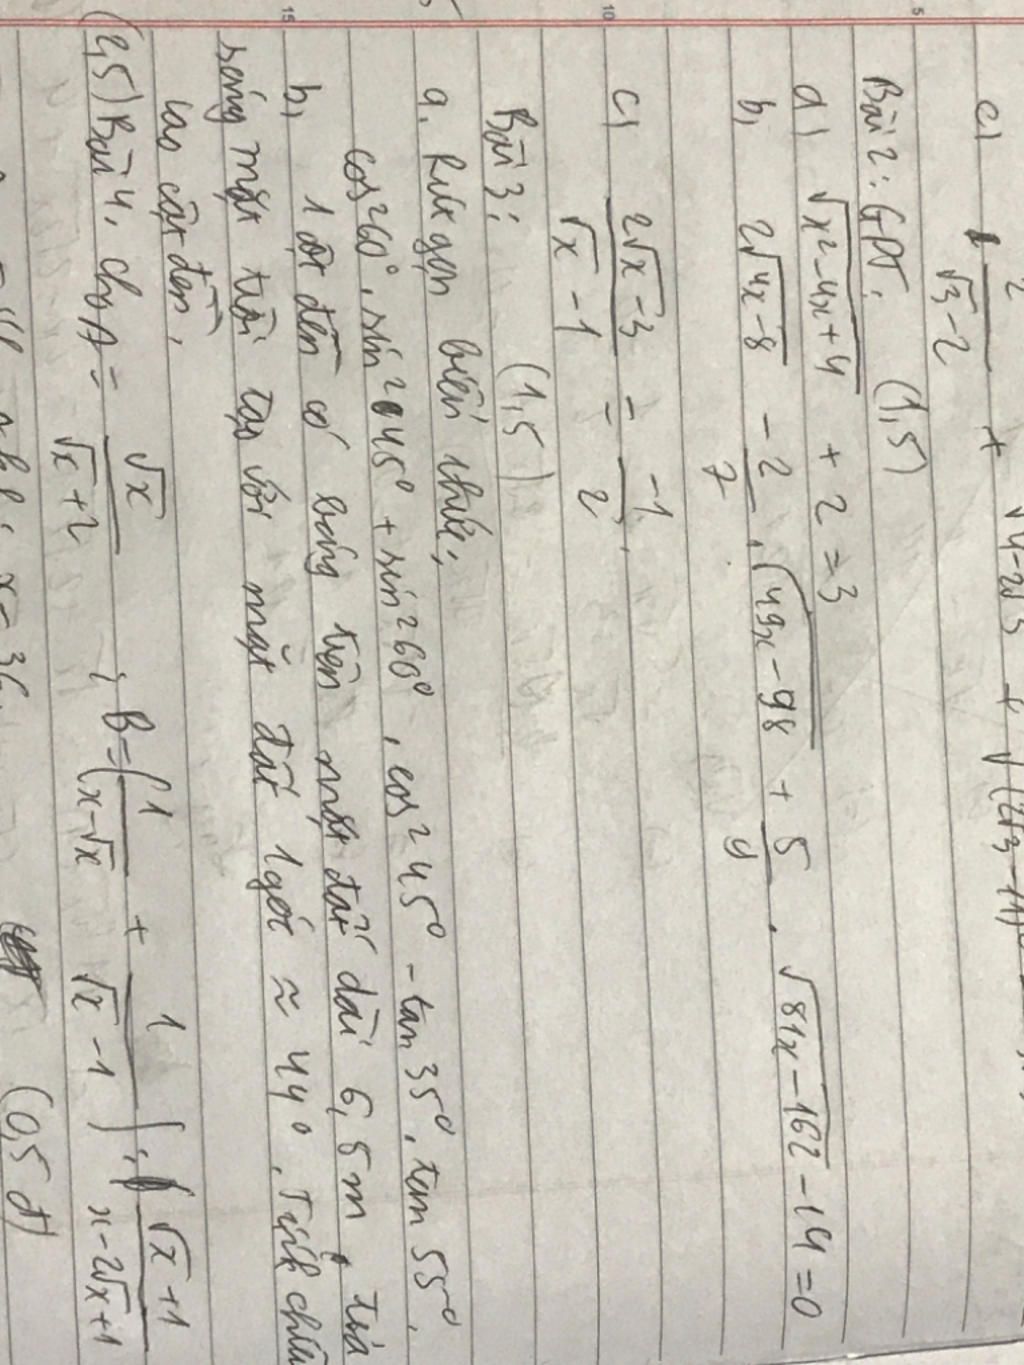 c) 2/(√3-2) + √(4-2√3) + √((2√3-11)
Bài 2: GPT: (1,5)
a) √(x²-4x+4) + 2 = 3
b, 2√(4x-8) - 2/7 . √(49x-98) + 5/9 . √(81x-162) - 14 = 0
c) (2√x-3)/(√x-1) = -1/2 .
Bài 3: (1,5)
a. Rút gọn biến thức:
cos²60°. sin²45° + sin²60°. cos²45° - tan 35°. tan 55°.
b, 1 cột đèn có bóng trên mặt đất dài 6,5m, tia
nắng mặt trời tạo với mặt đất 1 góc ≈ 44°. Tính chiều
cao cột đèn.
(2,5) Bài 4. cho A = √x/(√x+2) ; B = (1/(x-√x) + 1/(√x-1)) : (√x+1)/(x-2√x+1)
x = 36. (0,5 đ)
15
10
5